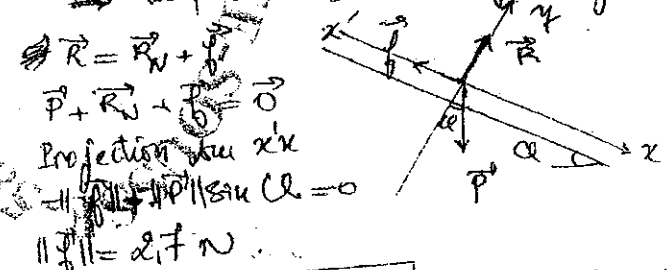 R⃗ = R⃗_N + f⃗
P⃗ + R⃗_N + f⃗ = 0⃗
Projection sur x'x
-||f⃗|| + ||P⃗|| sin α = 0
||f⃗|| = 2,7 N
x'
f⃗
y
R⃗
α
P⃗
α
x